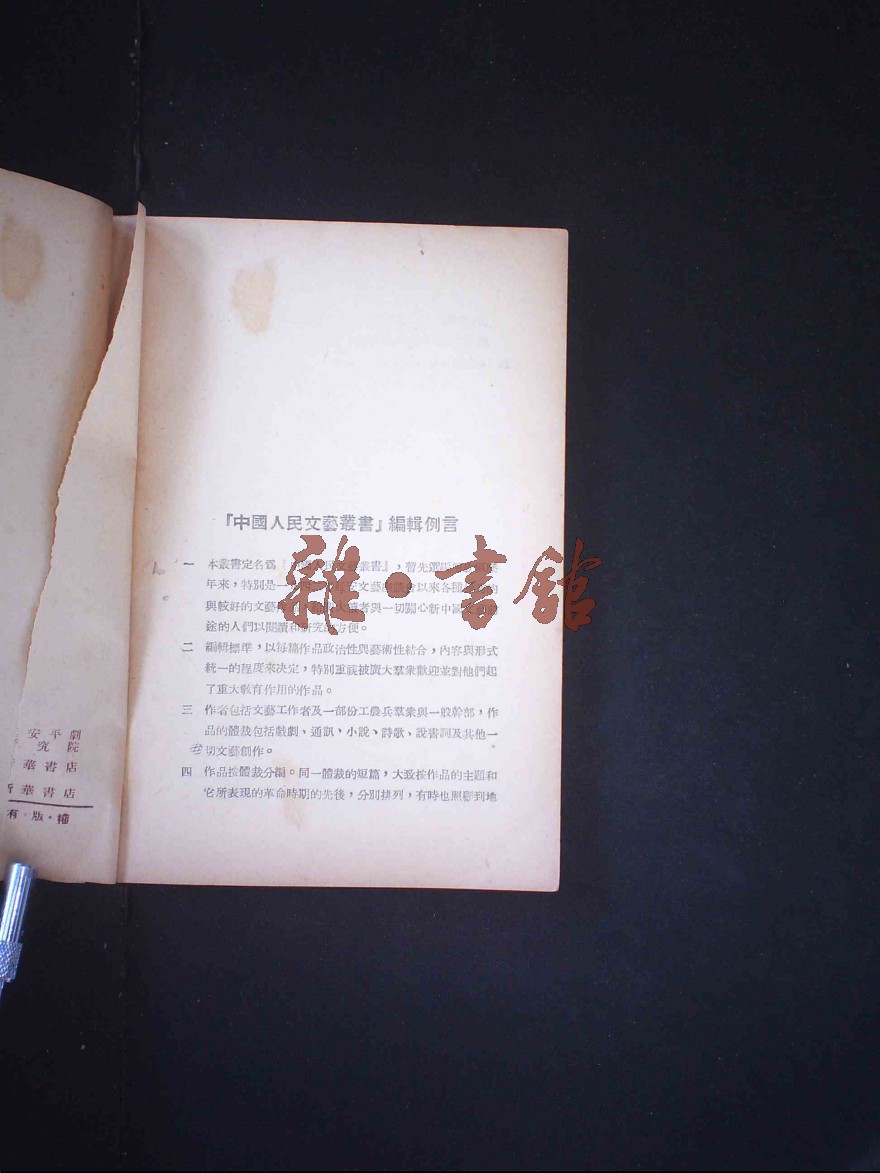 『中國人民文藝叢書』編輯例言
一 本叢書定名爲『中國人民文藝叢書』，暫先選
年來，特別是一 文藝座談會以來各
與較好的文藝作 讀者與一切關心新中國
途的人們以閱讀和研究的方便。
二 編輯標準，以每篇作品政治性與藝術性結合，內容與形式
統一的程度來决定，特別重視被廣大羣衆歡迎並對他們起
了重大敎育作用的作品。
三 作者包括文藝工作者及一部份工農兵羣衆與一般幹部，作
品的體裁包括戲劇、通訊、小說、詩歌、說書詞及其他一
切文藝創作。
四 作品按體裁分編。同一體裁的短篇，大致按作品的主題和
它所表現的革命時期的先後，分別排列，有時也照顧到地
安平劇
究院
華書店
新華書店
有·版·權
雜·書館